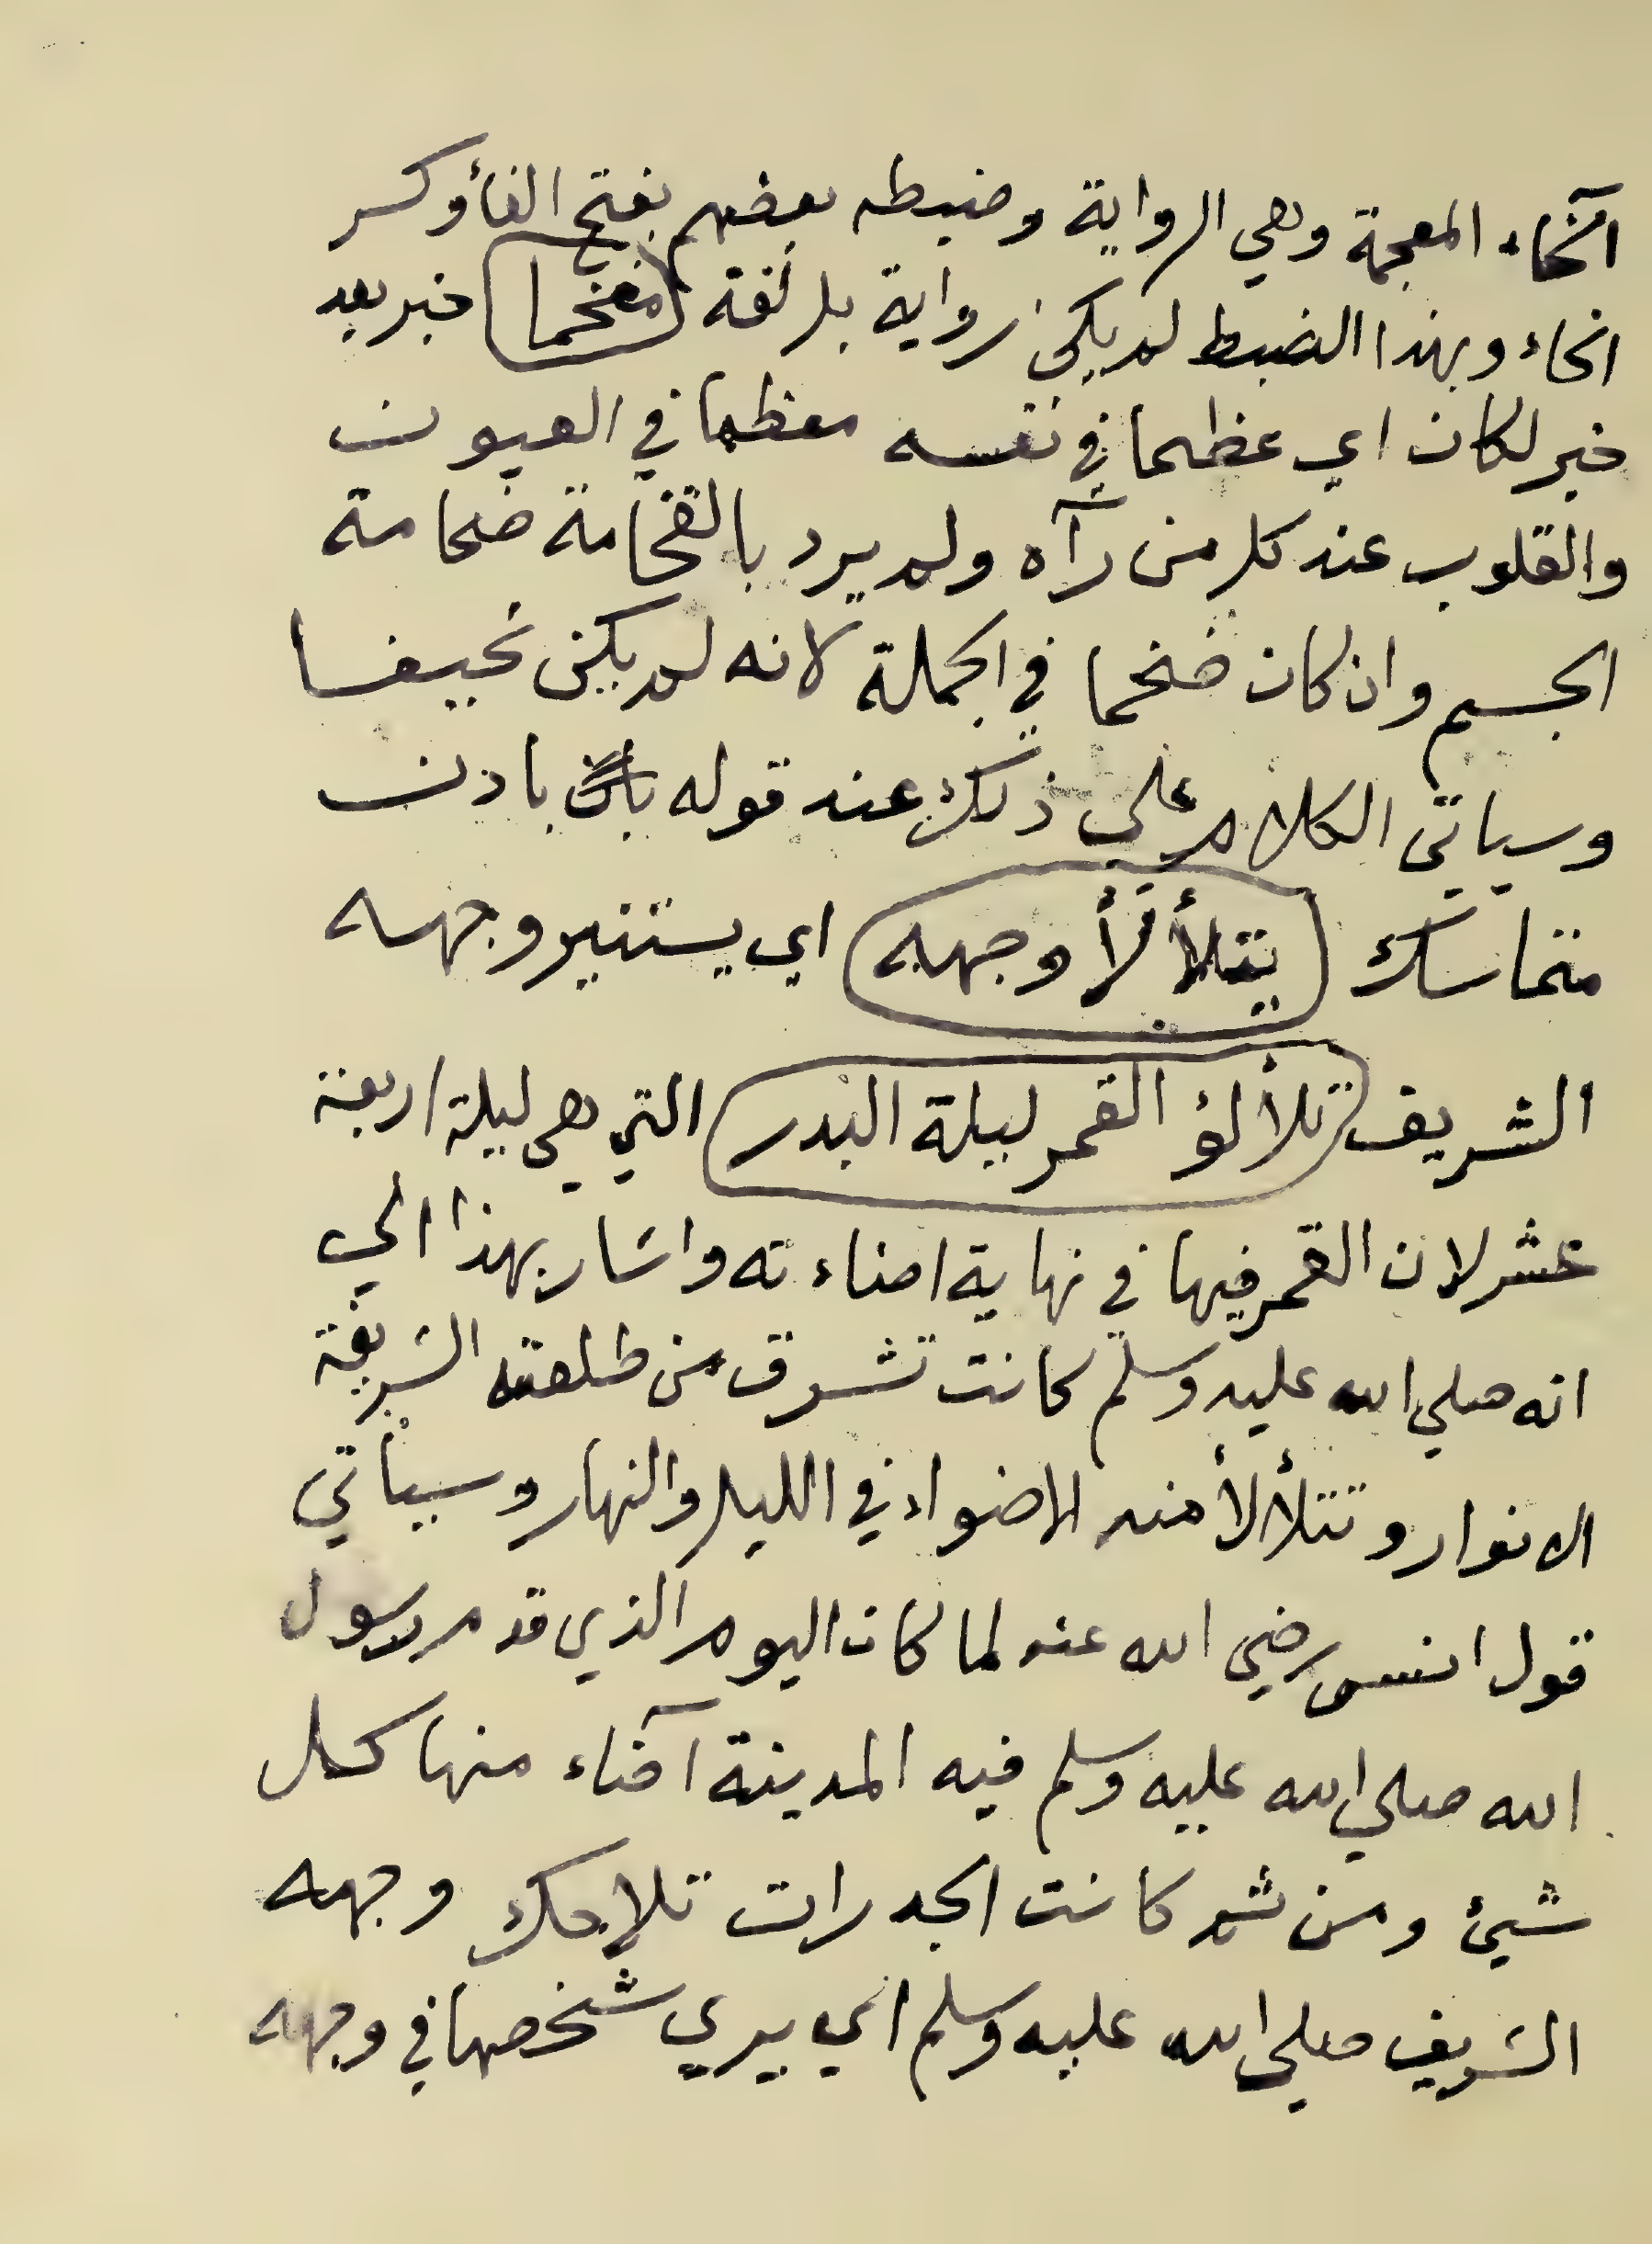 الخاء المعجمة وهي الرواية وضبطه بعضهم بفتح الفأ وكسر
الخاء وبهذا الضبط لم يكن رواية بل لغة مفخما خبر بعد
خبر لكان اي عظيما في نفسه معظما في العيون
والقلوب عند كل من رآه ولم يرد بالفخامة ضخامة
الجسم وان كان ضخما في الجملة لانه لم يكن نحيفا
وسياتي الكلام علي ذلك عند قوله بادن
متماسك يتلألأ وجهه اي يستنير وجهه
الشريف تلألؤ القمر ليلة البدر التي هي ليلة اربعة
عشر لان القمر فيها في نهاية اضاءته واشار بهذا الي
انه صلي الله عليه وسلم كانت تشرق من طلعته الشريفة
الانوار وتتلألأ منه الاضواء في الليل والنهار وسيأتي
قول انس رضي الله عنه لما كان اليوم الذي قدم رسول
الله صلي الله عليه وسلم فيه المدينة آضاء منها كل
شيئ ومن ثم كانت الجدرات تلاحك وجهه
الشريف صلي الله عليه وسلم اي يري شخصها في وجهه